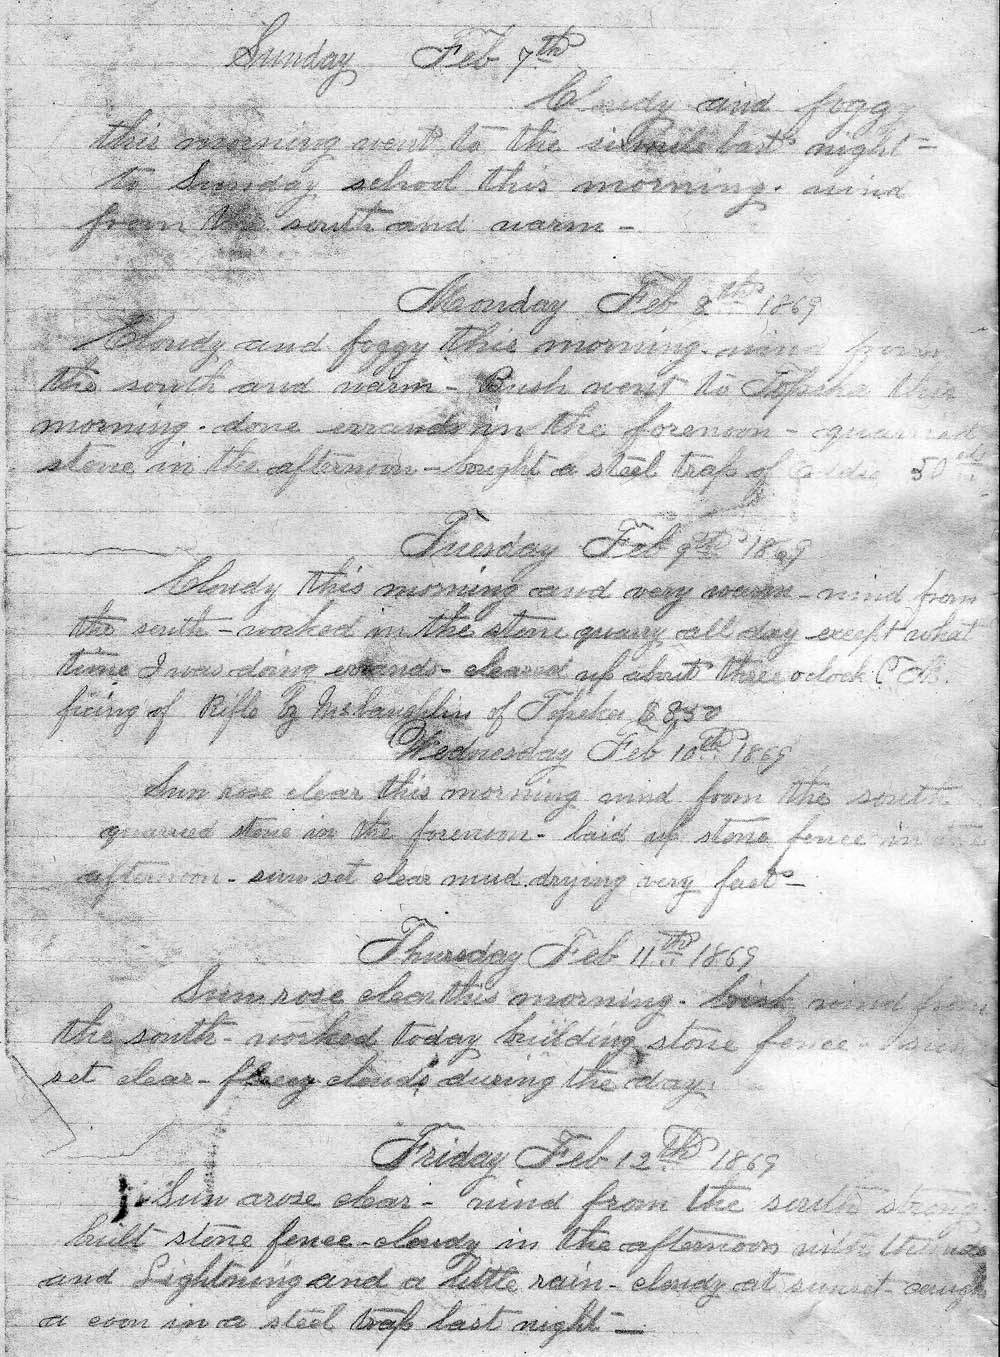 Sunday Feb 7th
Cloudy and foggy
this morning went to the last night -
to Sunday school this morning. wind
from the south and warm -
Monday Feb 8th 1869
Cloudy and foggy this morning. wind from
the south and warm - Bush went to Topeka this
morning. done errands in the forenoon - quarried
stone in the afternoon - bought a steel trap of 50 cts
Tuesday Feb 9th 1869
Cloudy this morning and very warm - wind from
the south - worked in the stone quarry all day except what
time I was doing errands - cleared up about three oclock
ficing of Rifle by McLaughlin of Topeka $8.50
Wednesday Feb 10th 1869
Sun rose clear this morning wind from the south
quarried stone in the forenoon - laid up stone fence in the
afternoon - sun set clear mud drying very fast -
Thursday Feb 11th 1869
Sun rose clear this morning - brisk wind from
the south - worked today building stone fence - sun
set clear - fleecy clouds during the day.
Friday Feb 12th 1869
Sun arose clear - wind from the south strong
built stone fence - cloudy in the afternoon with thunder
and Lightning and a little rain - cloudy at sunset - caught
a coon in a steel trap last night -